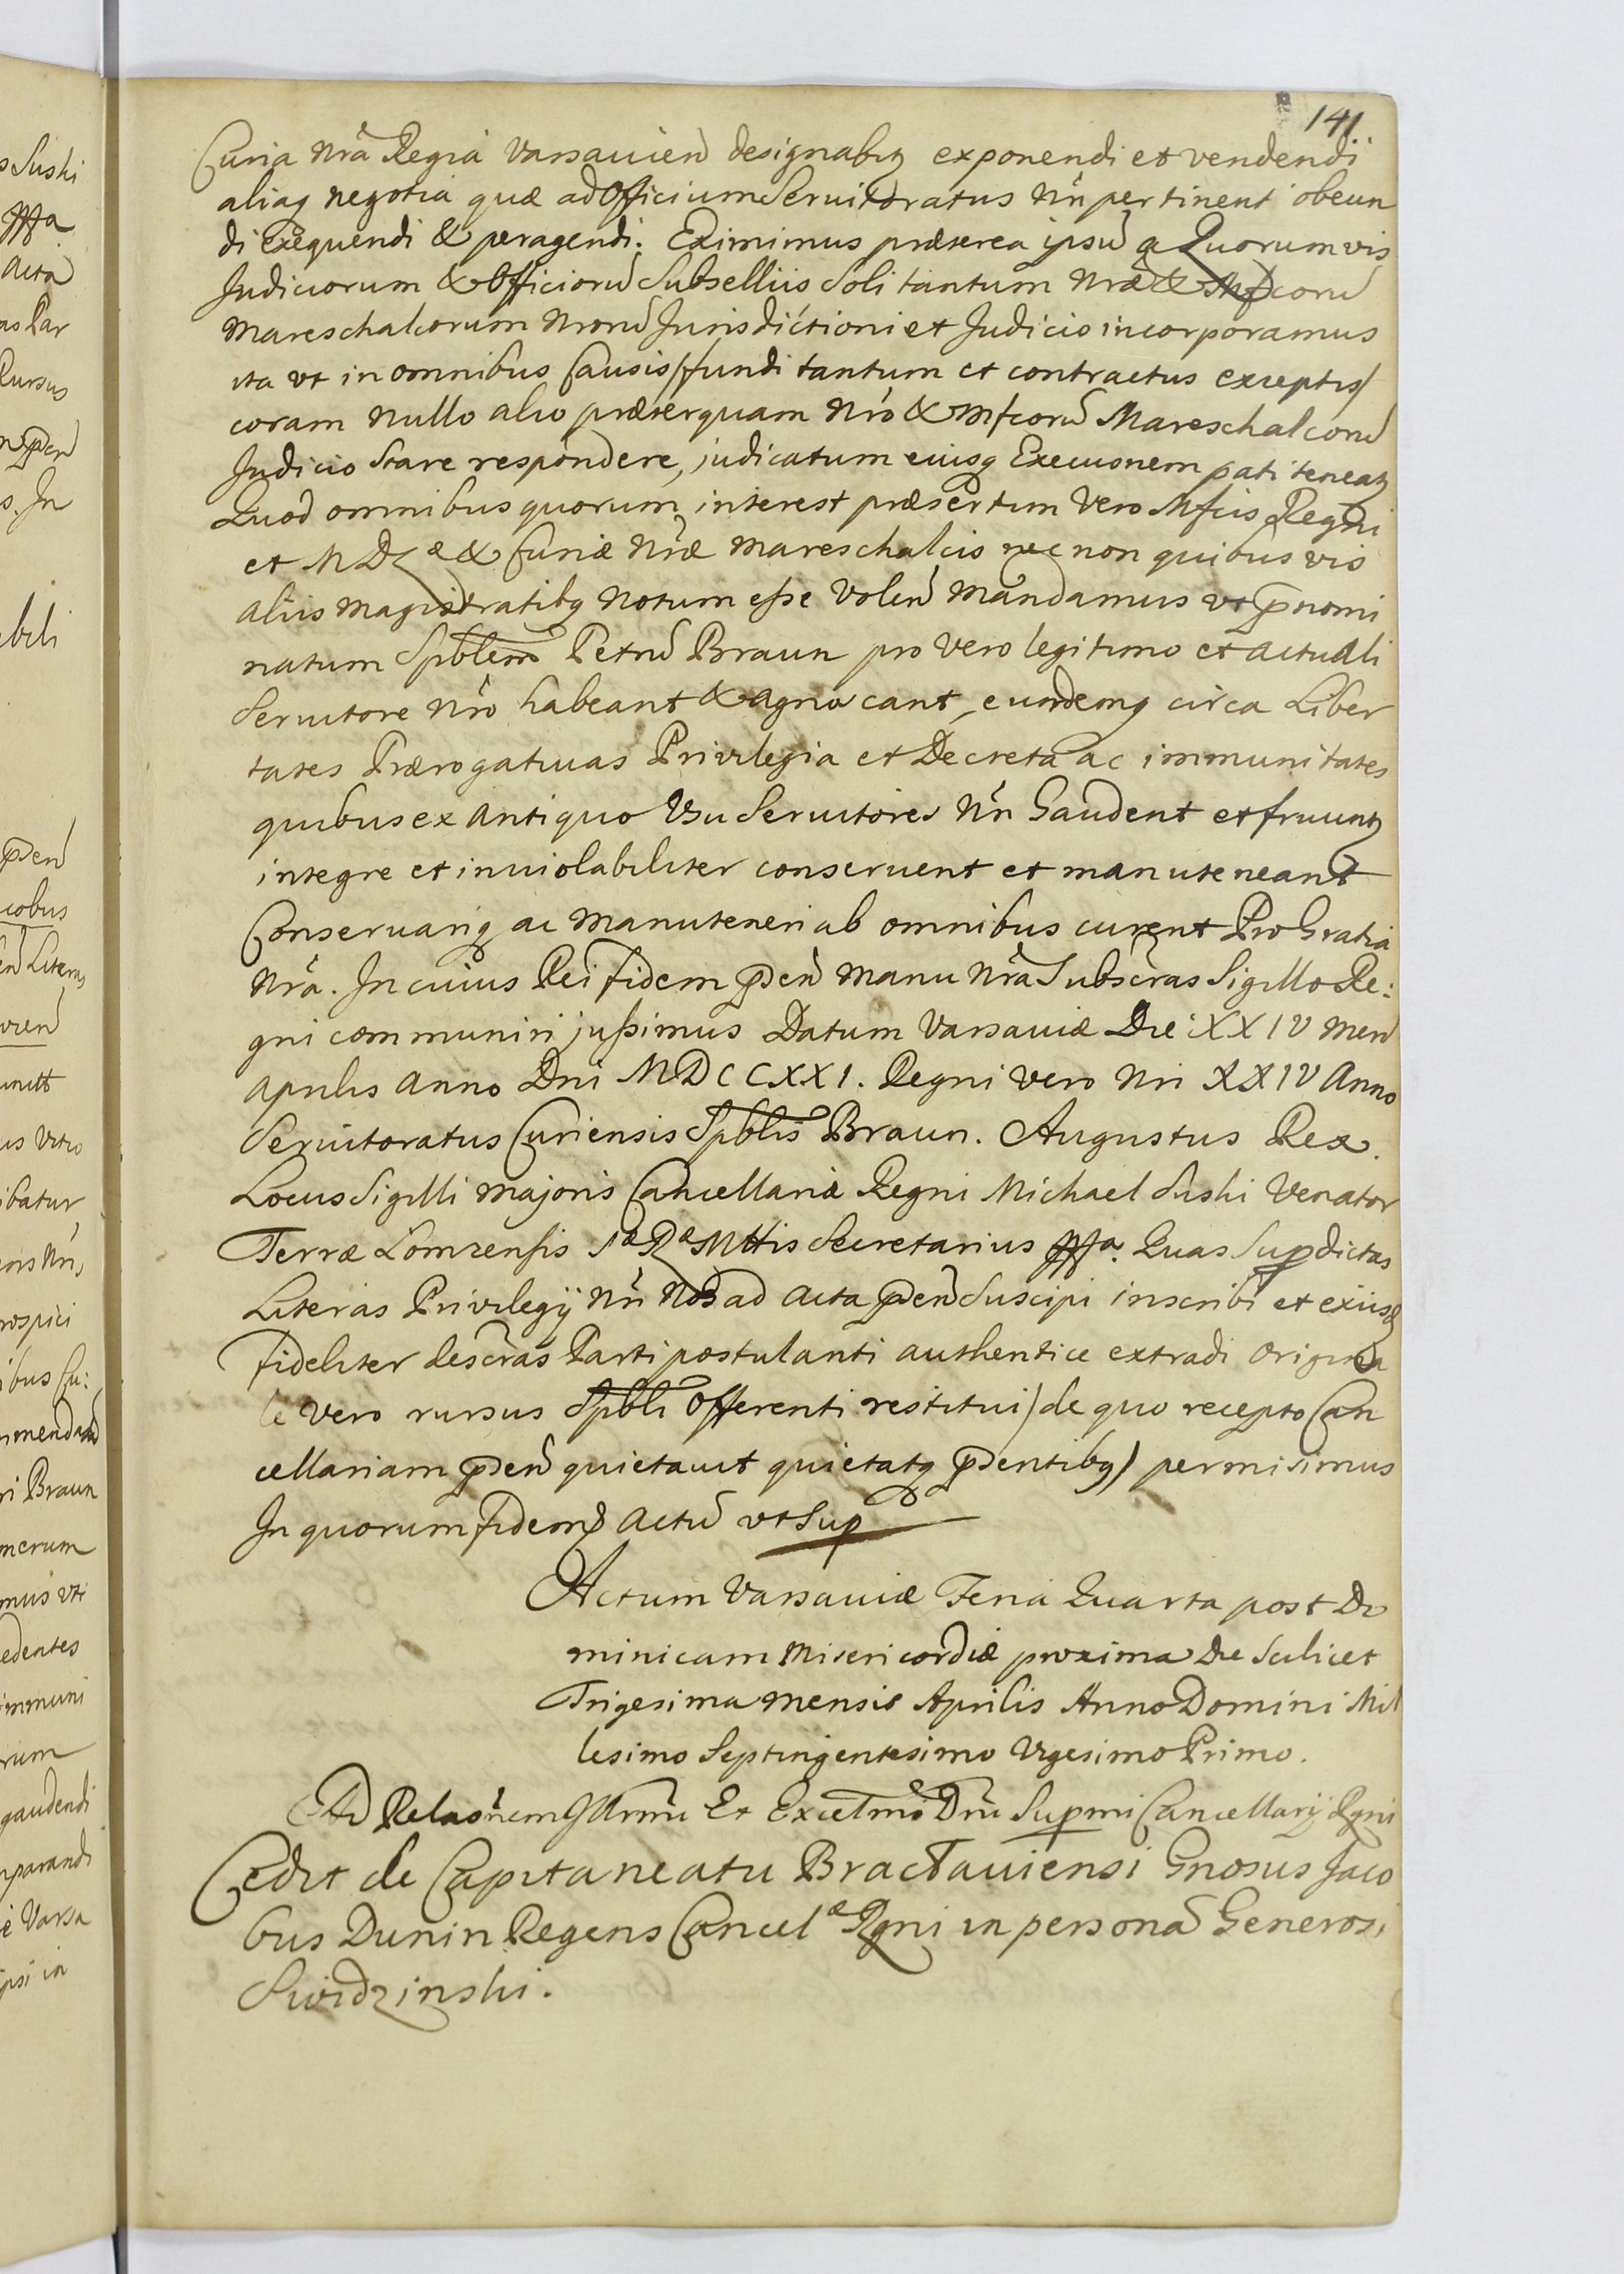 141
Curia Nrâ Regia Varsavien designabq exponendi et vendendi
aliaq negotia quæ ad Officium Servitoratus Nri pertinent obeun
di exequendi & peragendi. Eximimus præterea ipsū a Quorumvis
Judiciorum & Officiorū Subselliis Soli tantum Nræ & Mfcorū
Mareschalcorum Nrorū Jurisdictioni et Judicio incorporamus
ita vt in omnibus Causis /fundi tantum et contractus exceptis/
coram nullo alio præterquam Nrô & Mfcorū Mareschalcorū
Judicio Stare respondere, judicatum eiusq Execuonem pati teneatq
Quod omnibus quorum interest præsertim Vero Mfcis Regni
et M D L æ & Curiæ Nræ Mareschalcis nec non quibus vis
aliis magistratibq Notum esse Volen Mandamus vt pnomi
natum Spblem Petrū Braun pro Vero legitimo et actuali
Servitore Nrô habeant & agnoscant, eundemq circa Liber
tates Prærogativas Privilegia et Decreta ac immunitates
quibus ex antiquo Vsu Servitores Nri Gaudent et fruuntq
integre et inviolabiliter conservent et manuteneant
Conservariq ac Manuteneri ab omnibus curent Pro Gratia
Nrâ. In cuius Rei fidem pden manu Nrâ Subscras Sigillo Re:
gni communiri jussimus Datum Varsaviæ Die XXIV Men
aprilis Anno Dni MDCCXXI. Regni vero Nri XXIV Anno
Servitoratus Curiensis Spblis Braun. Augustus Rex.
Locus Sigilli majoris Cancellariæ Regni Michael Suski Venator
Terræ Lomzensis Sæ Ræ Mttis Secretarius mppa. Quas Supdictas
Literas Privilegij Nri Nos ad Acta pden Suscipi inscribi et exiisd
fideliter descras Parti postulanti authentice extradi Origina
le Vero rursus Spbli Offerenti restitui /de quo recepto Can
cellariam pden quietavit quietatq pdentibq/ permisimus
In quorum fidem Actū vt Sup
Actum Varsaviæ Feria Quarta post Do
minicam Misericordiæ proxima Die Scilicet
Trigesima mensis Aprilis Anno Domini Mil
lesimo Septingentesimo Vigesimo Primo.
Ad Relaonem Illrmi Et Excelmi Dni Supmi Cancellarij Rgni
Cedit de Capitaneatu Bractaviensi Gnosus Jaco
bus Dunin Regens Cancelæ Rgni in persona Generosi
Swidzinski.